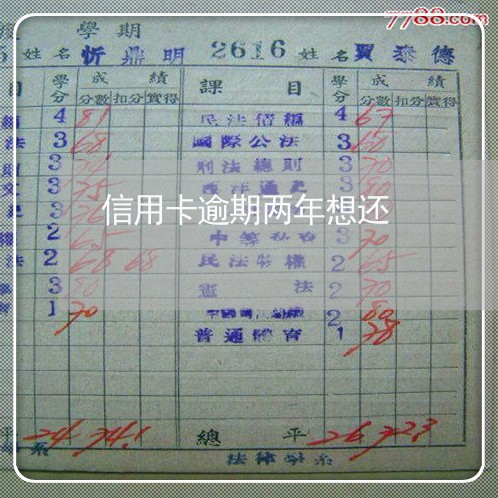 7788.com
學期
姓名 忻鼎明 2616 姓名 賈泰德
目 學分 成績 課目 學分 成績
分數 扣分 實得 分數 扣分 實得
4 81 民法債編 4 67
法 3 68 國際公法 3 60
3 刑法總則 3 70
3 75 西洋通史 3 80
信用卡逾期两年想还
2 65 3 70
法 2 68 68 民法物權 2 65
3 80 憲法 2 70
1 70 2 80
普通體育 1 78
平 24 74.1 總平 26 72.3
系 法律學系